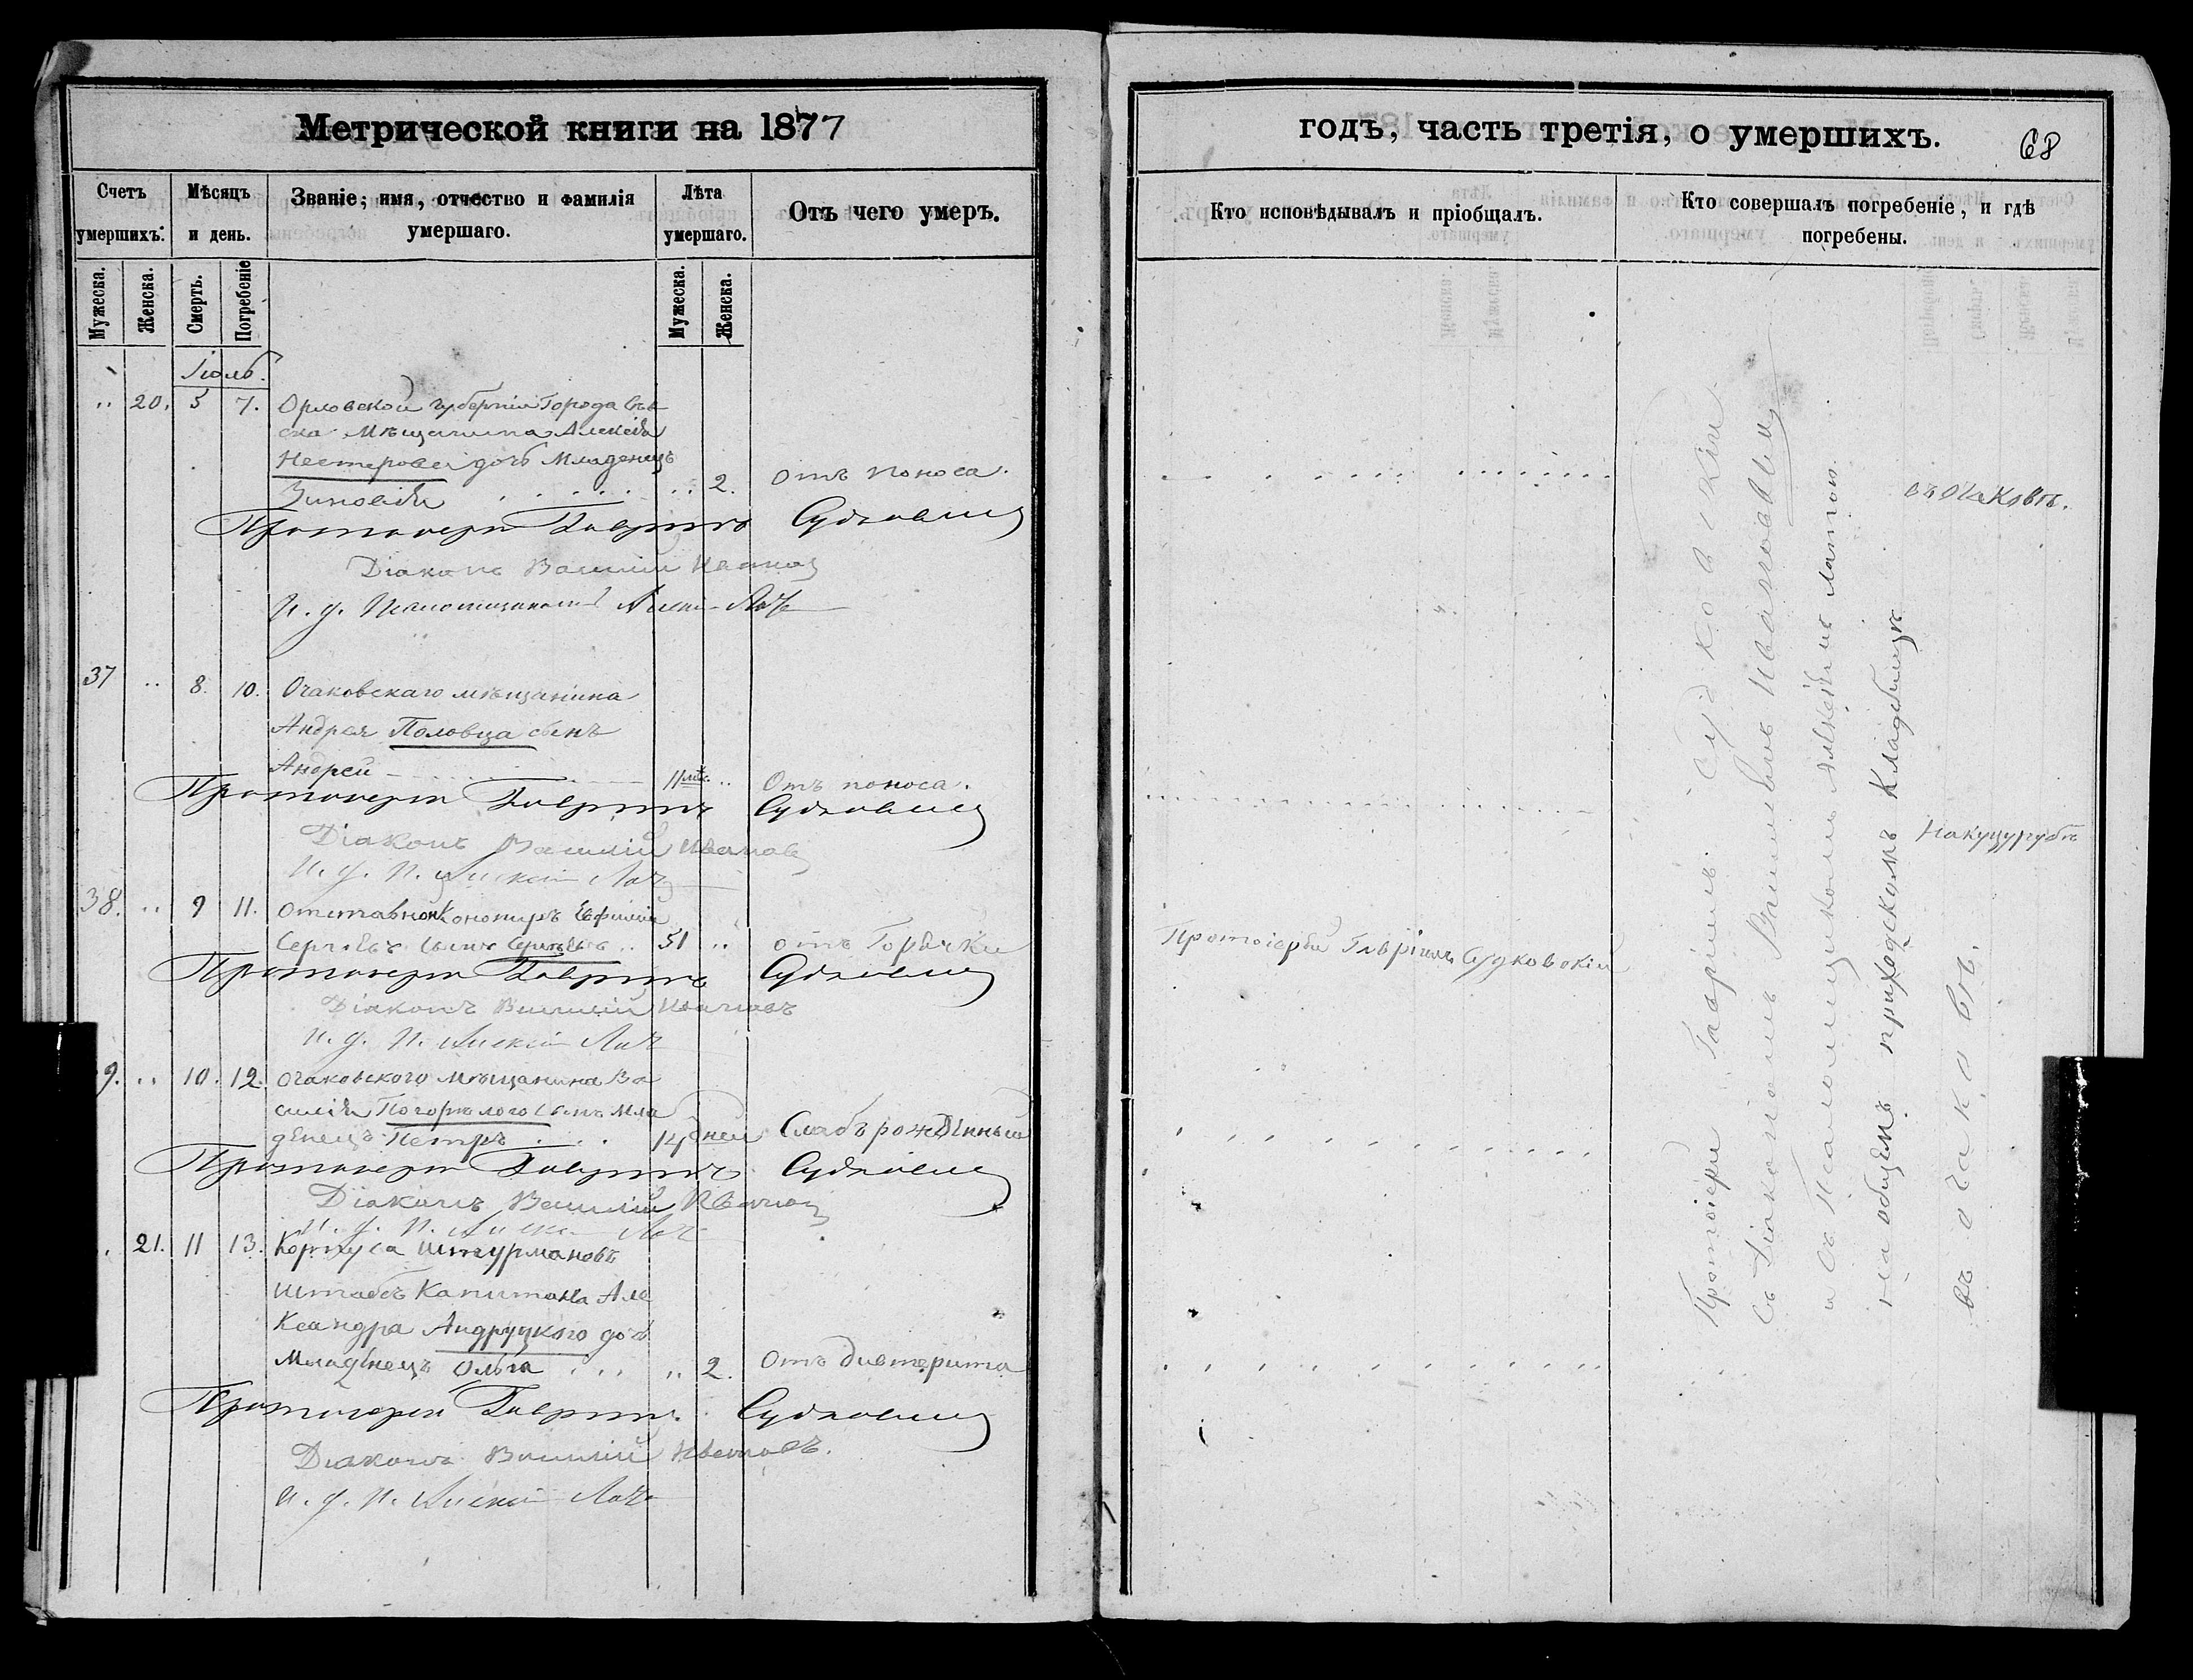 Метрической книги на 1877
Счетъ умершихъ.
Мѣсяцъ и день.
Званіе, имя, отчество и фамилія умершаго.
Лѣта умершаго.
Отъ чего умеръ.
Мужеска.
Женска.
Смерть.
Погребеніе
Мужеска.
Женска.
Іюль.
.. 20. 5 7. Орловской губерніи Города Сѣв
ска Мѣщанина Алексѣя
Нестерова дочь Младенецъ
Зиновія .. 2. отъ поноса.
Протоіерей Гавріилъ Судковскій
Діаконъ Василій Ивановъ
И. д. Псаломщика Алексій
37 .. 8. 10. Очаковскаго мѣщанина
Андрея Половца сынъ
Андрей 11 мѣс. .. Отъ поноса.
Протоіерей Гавріилъ Судковскій
Діаконъ Василій Ивановъ
И. д. П. Алексій
38. .. 9 11. Отставной Конониръ Ефимій
Сергѣевъ сынъ Сергѣевъ .. 51 .. отъ Горячки
Протоіерей Гавріилъ Судковскій
Діаконъ Василій Ивановъ
И. д. П. Алексій
9. .. 10. 12. Очаковского Мѣщанина Ва
силія Погорѣлого сынъ Мла
денецъ Петръ 14 дней Слаборожденный
Протоіерей Гавріилъ Судковскій
Діаконъ Василій Ивановъ
И. д. П. Алексій
21. 11 13. Корпуса Штурмановъ
Штабсъ Капитана Але
ксандра Андруцкого дочь
Младенецъ Ольга .. 2. Отъ дивтерита
Протоіерей Гавріилъ Судковскій
Діаконъ Василій Ивановъ.
И. д. П. Алексій
годъ, часть третія, о умершихъ.
68
Кто исповѣдывалъ и пріобщалъ.
Кто совершалъ погребеніе, и гдѣ погребены.
въ Очаковѣ.
На куцурубѣ
Протоіерей Гавріилъ Судковскій
Протоіерей Гавріилъ Судковскій
съ Діакономъ Василіемъ Ивановымъ
и съ Псаломщикомъ Алексѣемъ
на общемъ приходскомъ Кладбищѣ
въ Очаковѣ.